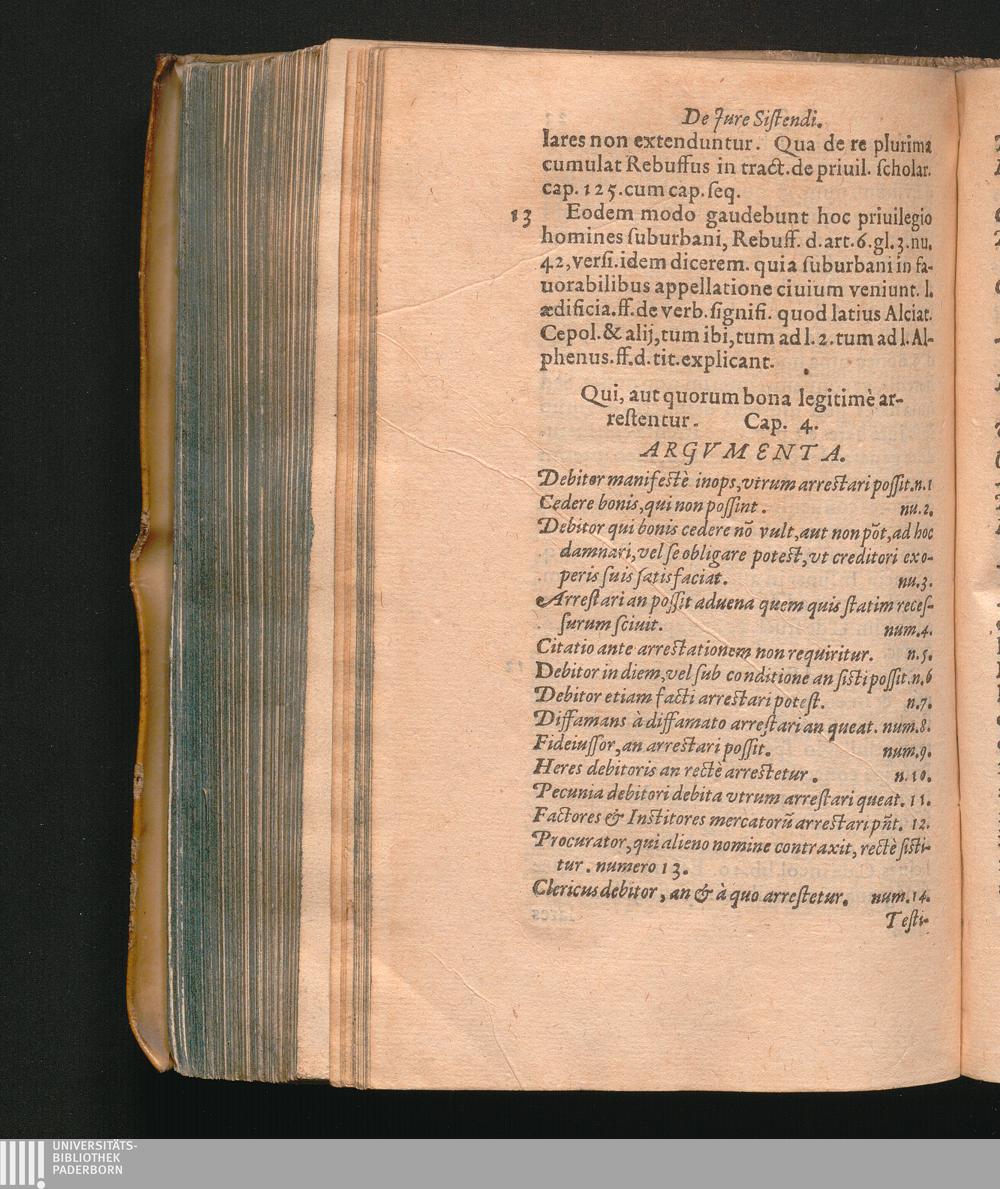 De Jure Sistendi.
lares non extenduntur. Qua de re plurima
cumulat Rebuffus in tract. de priuil. scholar.
cap. 125. cum cap. seq.
13 Eodem modo gaudebunt hoc priuilegio
homines suburbani, Rebuff. d. art. 6. gl. 3. nu.
42, versi. idem dicerem. quia suburbani in fa-
uorabilibus appellatione ciuium veniunt. l.
ædificia. ff. de verb. signifi. quod latius Alciat.
Cepol. & alij, tum ibi, tum ad l. 2. tum ad l. Al-
phenus. ff. d. tit. explicant.
Qui, aut quorum bona legitimè ar-
restentur. Cap. 4.
ARGVMENTA.
Debitor manifestè inops, vtrum arrestari possit. n. 1
Cedere bonis, qui non possint. nu. 2.
Debitor qui bonis cedere nō vult, aut non põt, ad hoc
damnari, vel se obligare potest, vt creditori exo-
peris suis satisfaciat. nu. 3.
Arrestari an possit aduena quem quis statim reces-
surum sciuit. num. 4.
Citatio ante arrestationem non requiritur. n. 5.
Debitor in diem, vel sub conditione an sisti possit. n. 6
Debitor etiam facti arrestari potest. n. 7.
Diffamans à diffamato arrestari an queat. num. 8.
Fideiussor, an arrestari possit. num. 9.
Heres debitoris an rectè arrestetur. n. 10.
Pecunia debitori debita vtrum arrestari queat. 11.
Factores & Institores mercatorũ arrestari pñt. 12.
Procurator, qui alieno nomine contraxit, rectè sisti-
tur. numero 13.
Clericus debitor, an & à quo arrestetur. num. 14.
Testi-
UNIVERSITÄTS-
BIBLIOTHEK
PADERBORN